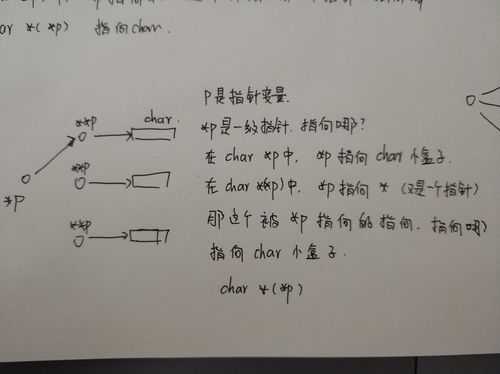 char *(*p) 指向char.
p是指针变量.
*p是一级指针. 指向哪?
在 char *p 中, *p 指向 char 小盒子.
在 char *(*p) 中, *p 指向 * (又是一个指针)
那这个被 *p 指向的指向, 指向哪?
指向 char 小盒子.
char *(*p)
**p
char.
**p
*p
**p